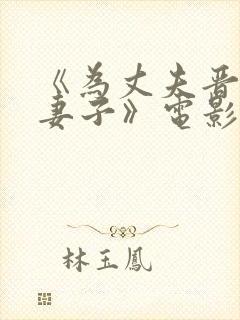 《為丈夫晋
妻子》電影
林玉鳳